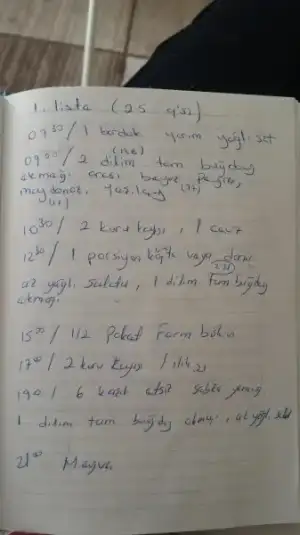 1. lista (25
07³⁰ / 1 bardak yarım yağlı süt
09⁰⁰ / 2 dilim tam buğday
ekmeği arası beyaz peynir,
maydanoz,
10³⁰ / 2 kuru kayısı, 1 ceviz
12³⁰ / 1 porsiyon köfte veya
az yağlı salata, 1 dilim tam buğday
ekmeği
15⁰⁰ / 1/2 Paket Form bisküvi
17⁰⁰ / 2 kuru kayısı /
19⁰⁰ / 6 kaşık etsiz sebze yemeği
1 dilim tam buğday ekmeği, az yağlı salata
21⁰⁰ Meyve